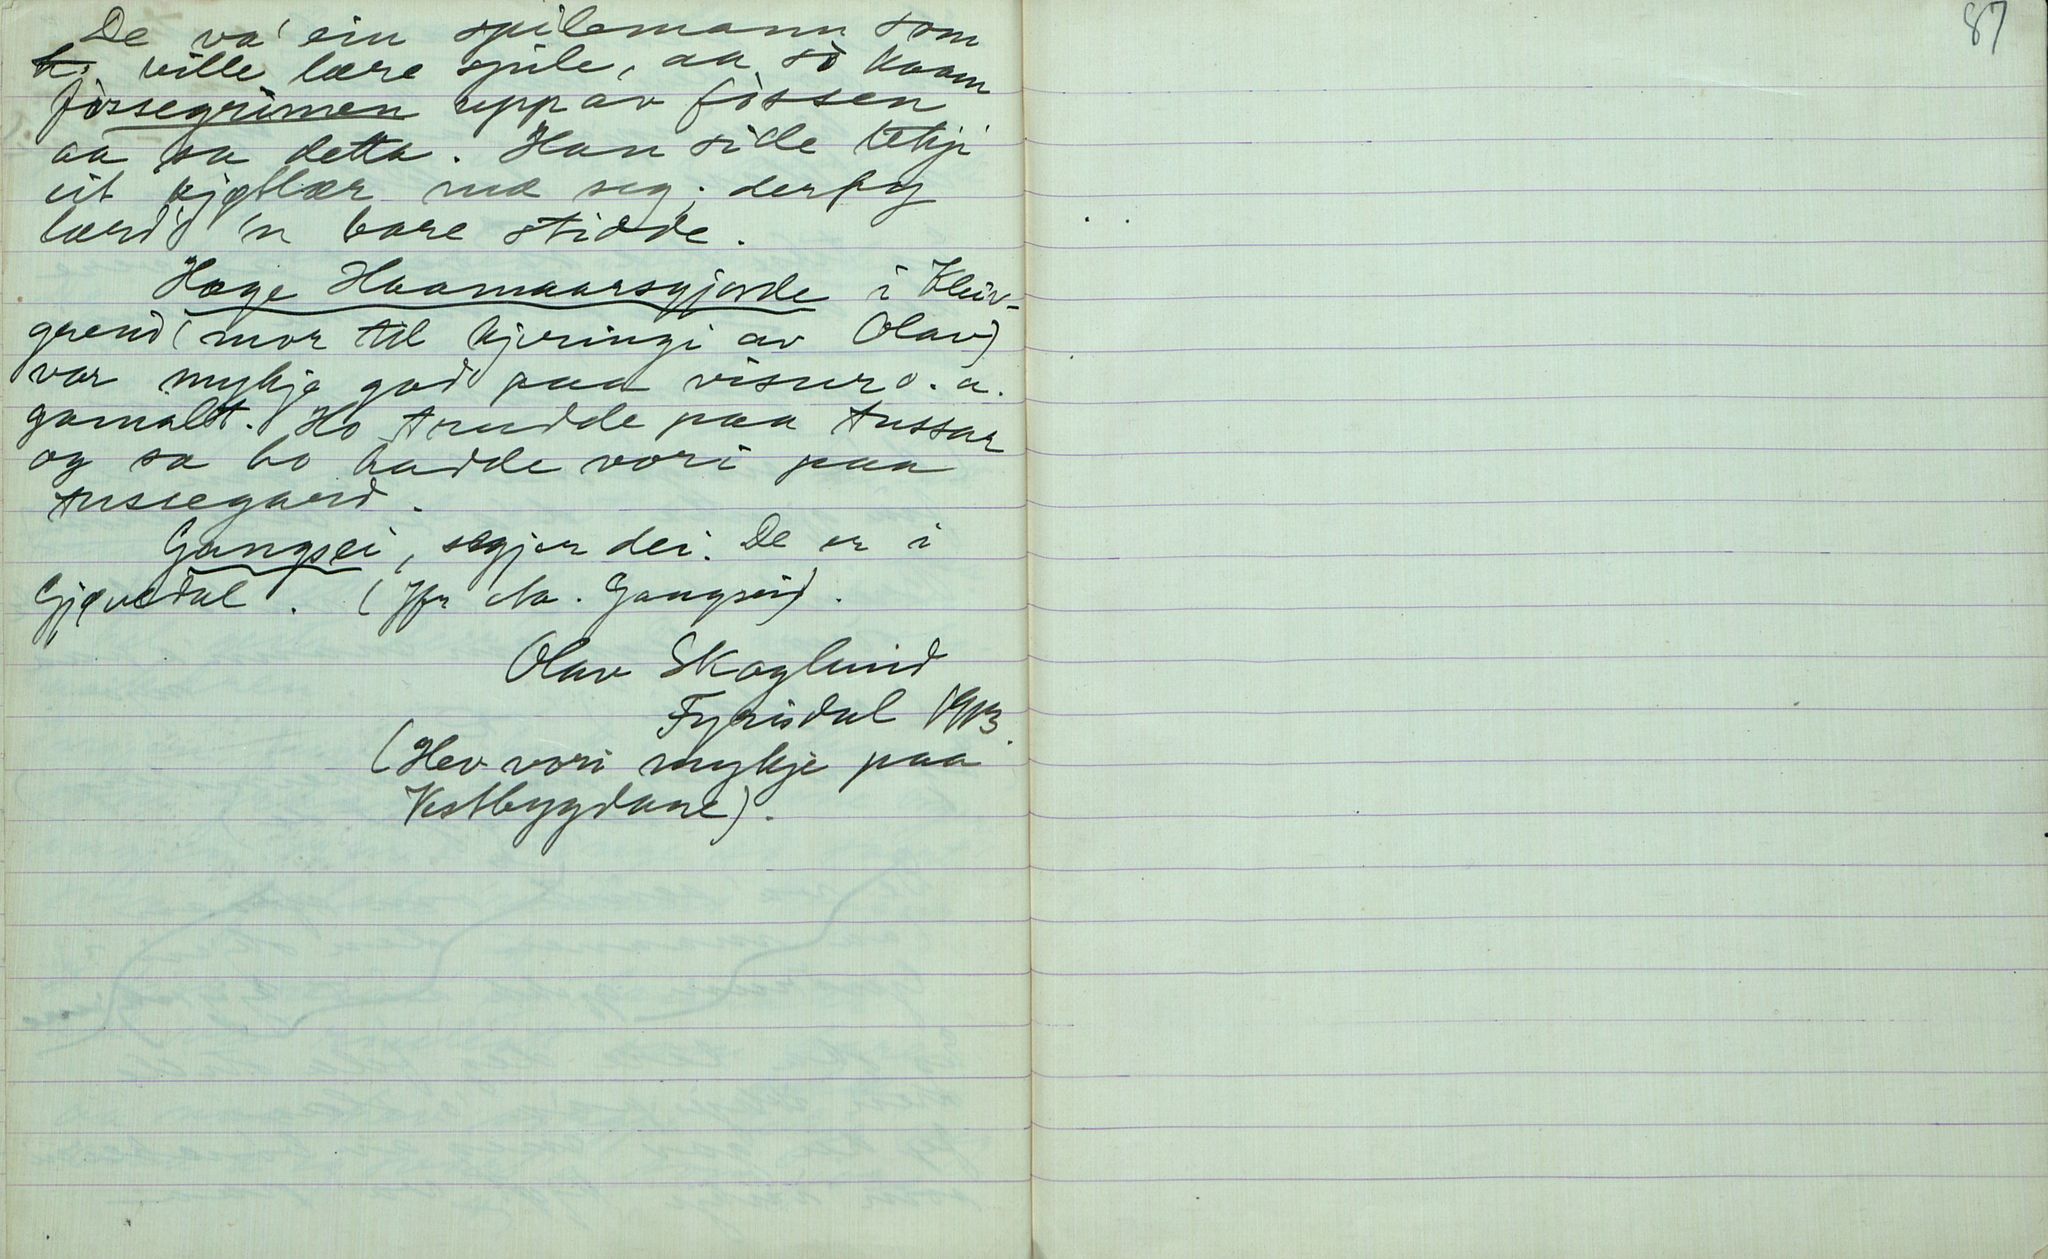 De va' ein spilemann som
h. ville lære spile, aa so kaam
fossegrimen upp av fossen
aa sa detta. Han sille tekji
eit kjøtlær mæ seg; derfy
lærd' 'n bare stidde.
Høge Haamaarsgjorde i Kleiv-
grend (mor til kjeringi av Olav)
var mykje god paa visur o. a.
gamalt. Ho trudde paa tussar
og sa ho hadde vori paa
tussegard.
Gangsei, segjer dei. De er i
Gjøvedal. (Jfr Aa. Gangseid).
Olav Skoglund
Fyrisdal 1913.
(Hev vori mykje paa
Vestbygdane).
87